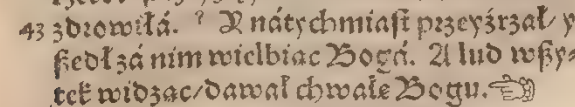 43 zdrowiłá. ⁊ Y nátychmiaſt przeyźrzał/ y
ſzedł zá nim wielbiąc Bogá. A lud wſzy⸗
tek widząc/ dawał chwałę Bogu. ☜